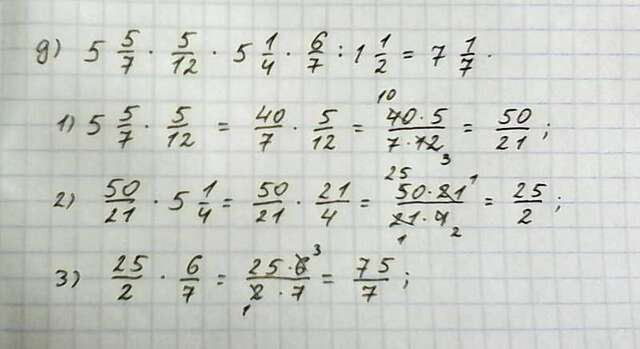 д) 5 5/7 · 5/12 · 5 1/4 · 6/7 : 1 1/2 = 7 1/7.
1) 5 5/7 · 5/12 = 40/7 · 5/12 = (40^10 · 5)/(7 · 12_3) = 50/21;
2) 50/21 · 5 1/4 = 50/21 · 21/4 = (50^25 · 21^1)/(21_1 · 4_2) = 25/2;
3) 25/2 · 6/7 = (25 · 6^3)/(2_1 · 7) = 75/7;